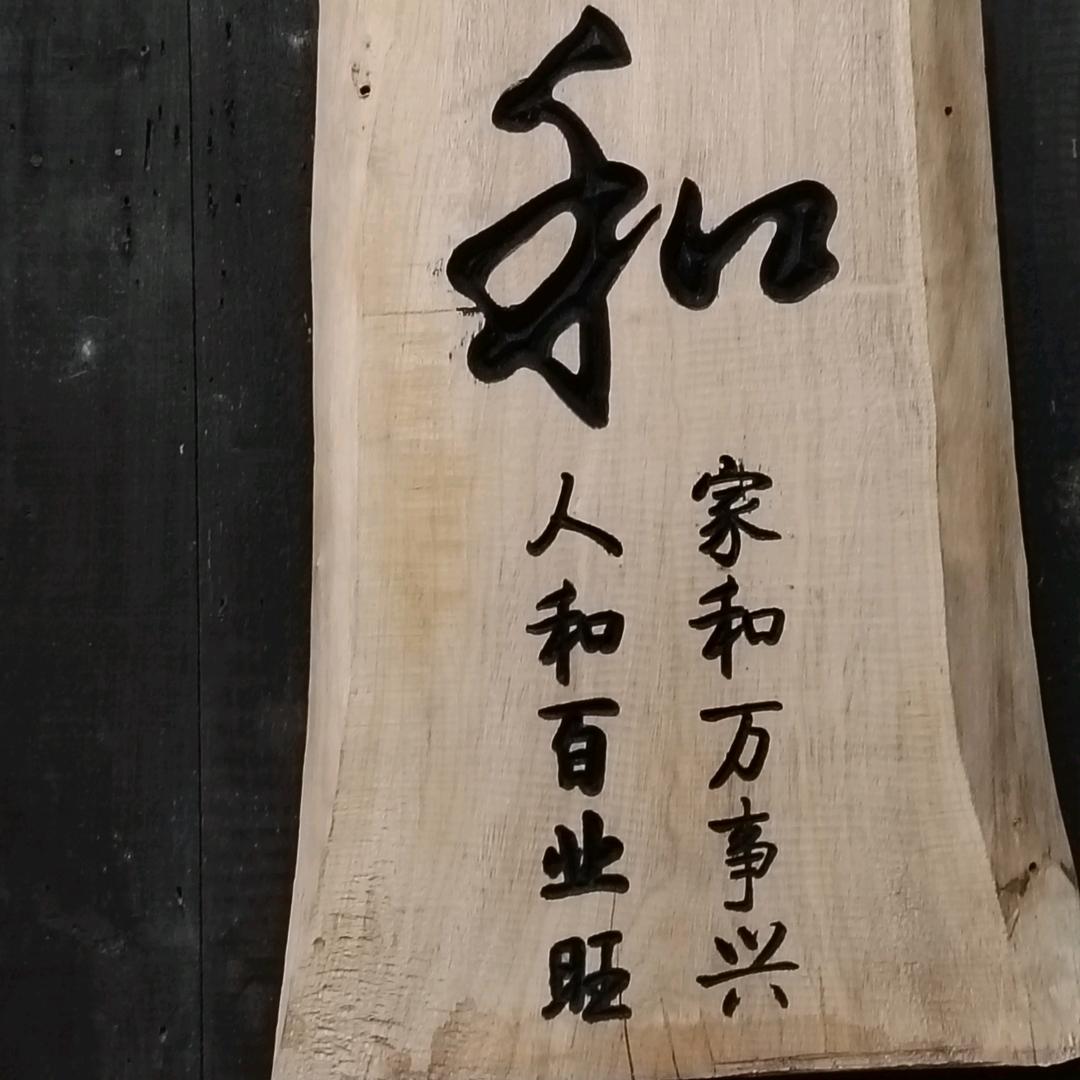 和
家和万事兴
人和百业旺